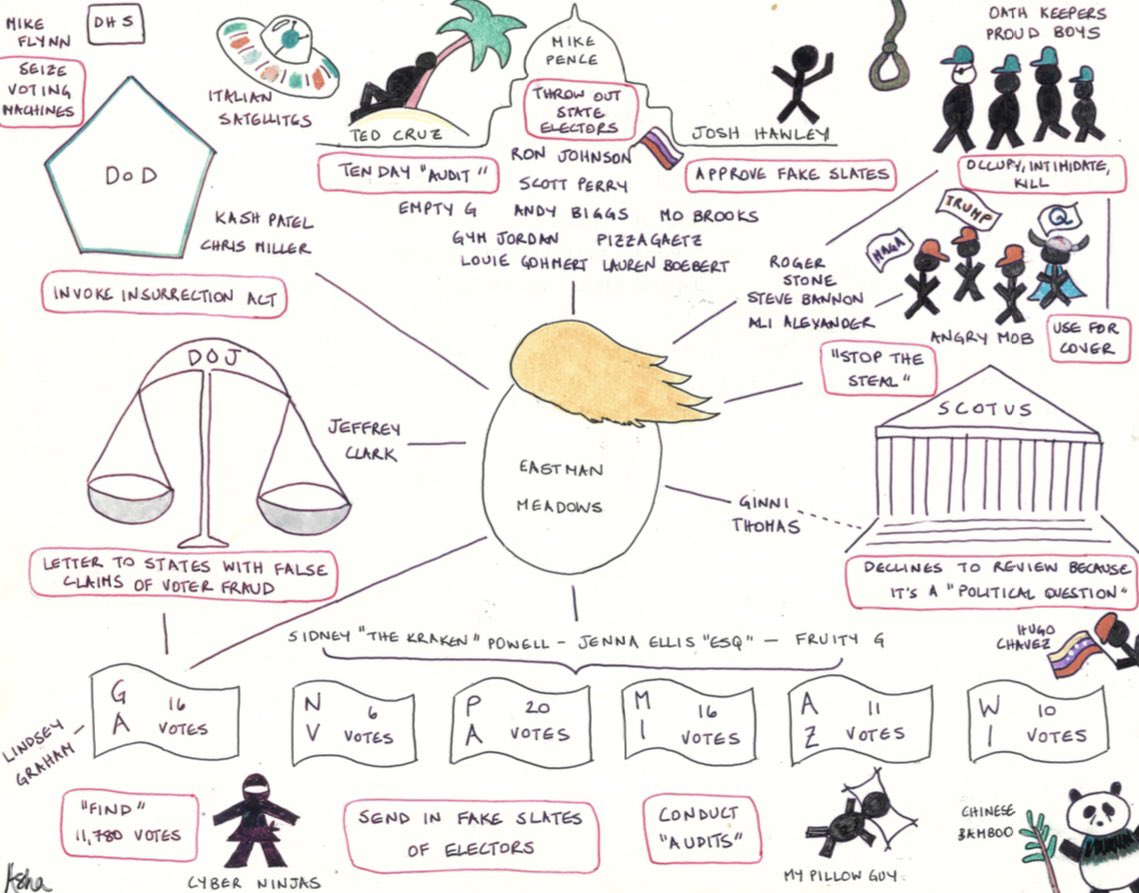 MIKE
FLYNN
DHS
SEIZE
VOTING
MACHINES
DOD
KASH PATEL
CHRIS MILLER
INVOKE INSURRECTION ACT
ITALIAN
SATELLITES
TED CRUZ
TEN DAY "AUDIT"
MIKE
PENCE
THROW OUT
STATE
ELECTORS
JOSH HAWLEY
APPROVE FAKE SLATES
RON JOHNSON
SCOTT PERRY
EMPTY G ANDY BIGGS MO BROOKS
GYM JORDAN PIZZAGAETZ
LOUIE GOHMERT LAUREN BOEBERT
OATH KEEPERS
PROUD BOYS
OCCUPY, INTIMIDATE,
KILL
ROGER
STONE
STEVE BANNON
ALI ALEXANDER
MAGA
TRUMP
Q
ANGRY MOB
USE FOR
COVER
"STOP THE
STEAL"
DOJ
JEFFREY
CLARK
LETTER TO STATES WITH FALSE
CLAIMS OF VOTER FRAUD
EASTMAN
MEADOWS
GINNI
THOMAS
SCOTUS
DECLINES TO REVIEW BECAUSE
IT'S A "POLITICAL QUESTION"
SIDNEY "THE KRAKEN" POWELL - JENNA ELLIS "ESQ" - FRUITY G
HUGO
CHAVEZ
LINDSEY
GRAHAM
GA 16
VOTES
NV 6
VOTES
PA 20
VOTES
MI 16
VOTES
AZ 11
VOTES
WI 10
VOTES
"FIND"
11,780 VOTES
CYBER NINJAS
SEND IN FAKE SLATES
OF ELECTORS
CONDUCT
"AUDITS"
MY PILLOW GUY
CHINESE
BAMBOO
Asha